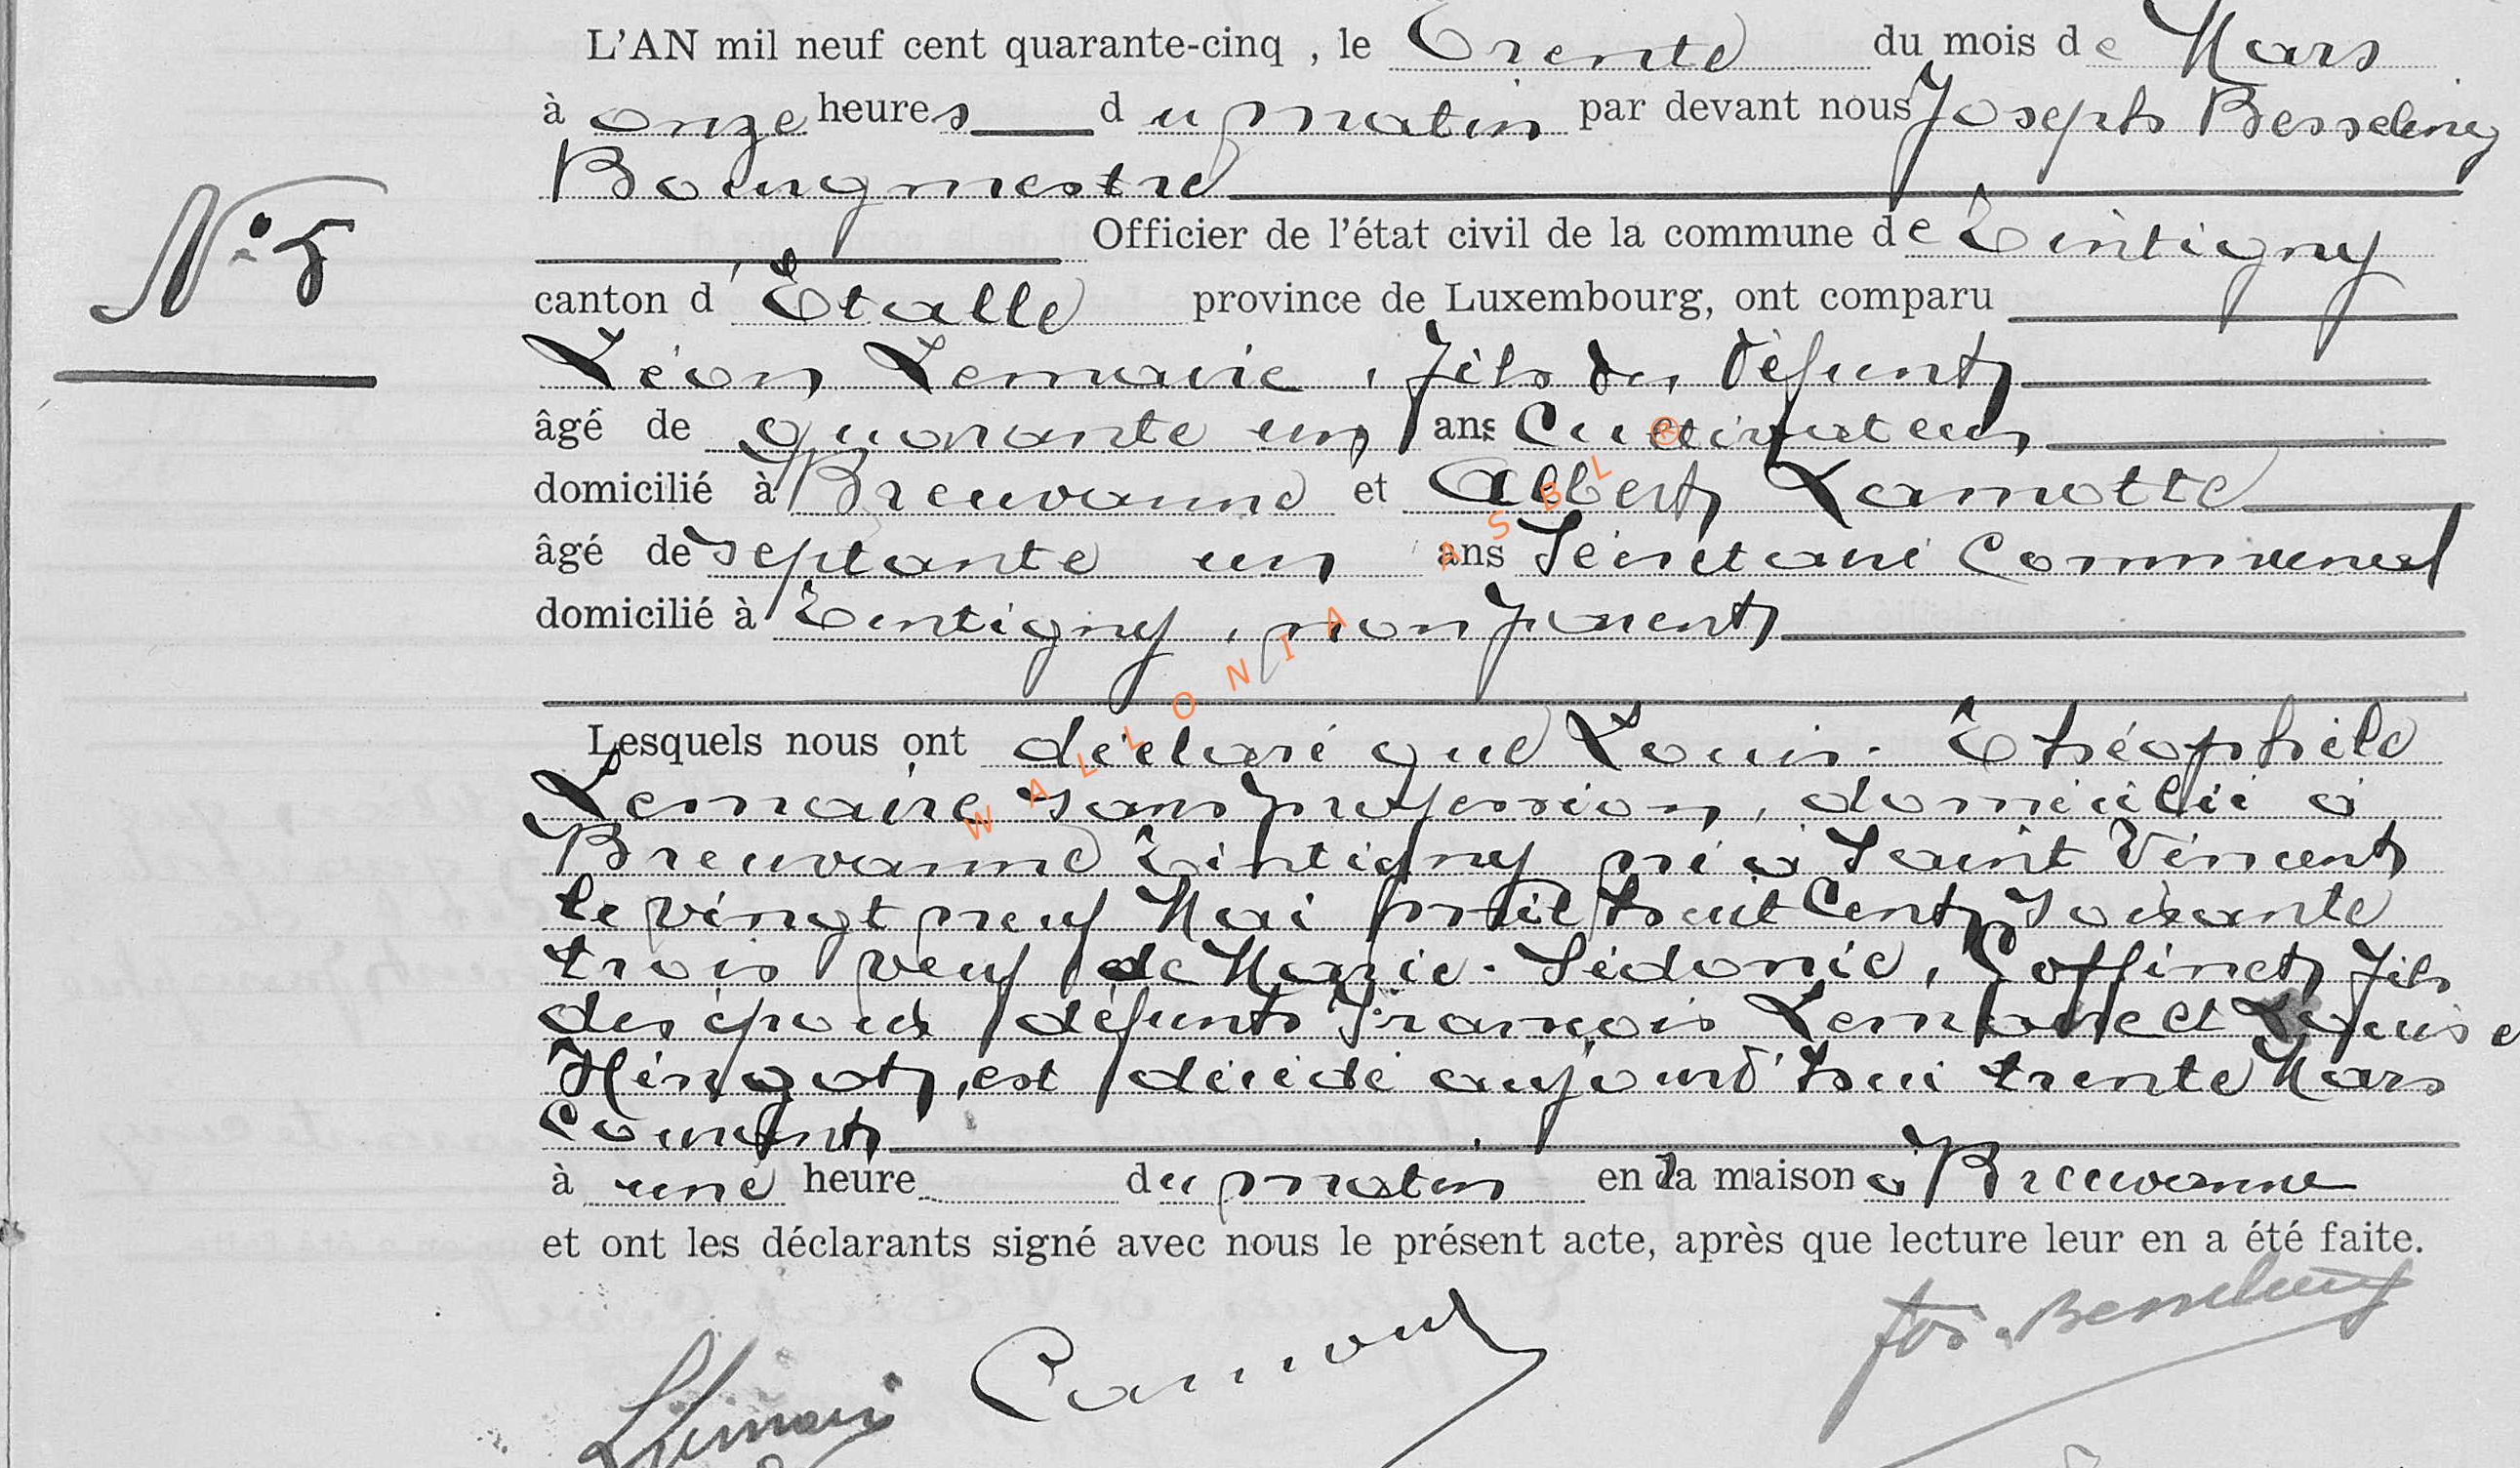 L'AN mil neuf cent quarante-cinq , le Trente du mois de Mars
à onze heures d u matin par devant nous Joseph Besseling
Bourgmestre
N° 5
Officier de l'état civil de la commune de Tintigny
canton d' Étalle province de Luxembourg, ont comparu
Léon Lemaire , fils du défunt
âgé de quarante un ans Cultivateur
domicilié à Breuvanne et Albert Lamotte
âgé de septante un ans Secrétaire Communal
domicilié à Tintigny , non parent
Lesquels nous ont déclaré que Louis - Théophile
Lemaire sans profession , domicilié à
Breuvanne Tintigny né à Saint Vincent
le vingt neuf Mai mil huit Cent soixante
trois veuf de Marie - Sidonie , Goffinet fils
des époux défunts François Lemaire et Louise
Hingot , est décédé aujourd'hui trente Mars
Courant
à une heure du matin en la maison à Breuvanne
et ont les déclarants signé avec nous le présent acte, après que lecture leur en a été faite.
Jos. Besseling
WALLONIA ASBL ®